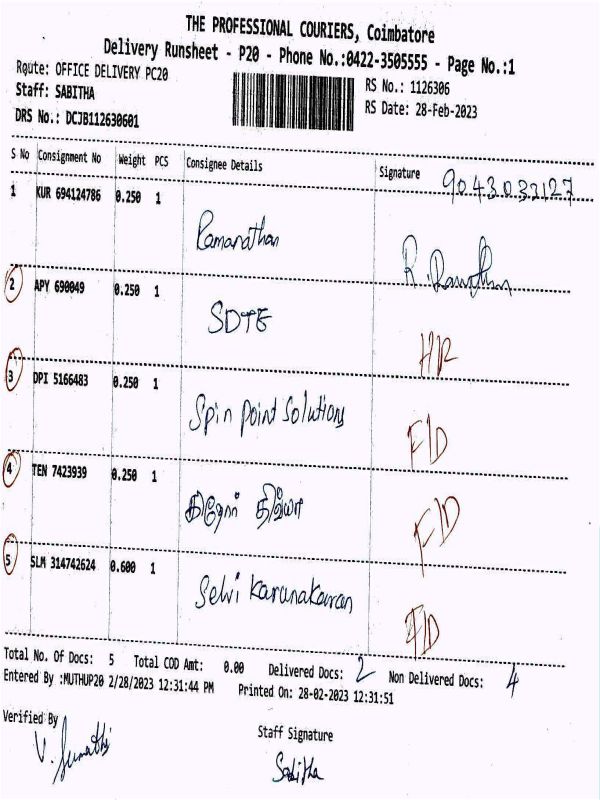 THE PROFESSIONAL COURIERS, Coimbatore
Delivery Runsheet - P20 - Phone No.:0422-3505555 - Page No.:1
Route: OFFICE DELIVERY PC20
RS No.: 1126306
Staff: SABITHA
RS Date: 28-Feb-2023
DRS No.: DCJB112630601
S No Consignment No Weight PCS Consignee Details Signature 9043033127
1 KUR 694124786 0.250 1
Ramanathan
2 APY 690049 0.250 1
SDTE
HR
3 DPI 5166483 0.250 1
Spin point Solutions
F/D
4 TEN 7423939 0.250 1
F/D
5 SLM 314742624 0.600 1
Selvi Karunakaran
F/D
Total No. Of Docs: 5 Total COD Amt: 0.00 Delivered Docs: 2 Non Delivered Docs: 4
Entered By :MUTHUP20 2/28/2023 12:31:44 PM Printed On: 28-02-2023 12:31:51
Verified By
Staff Signature
V. Sumathi
Sabitha